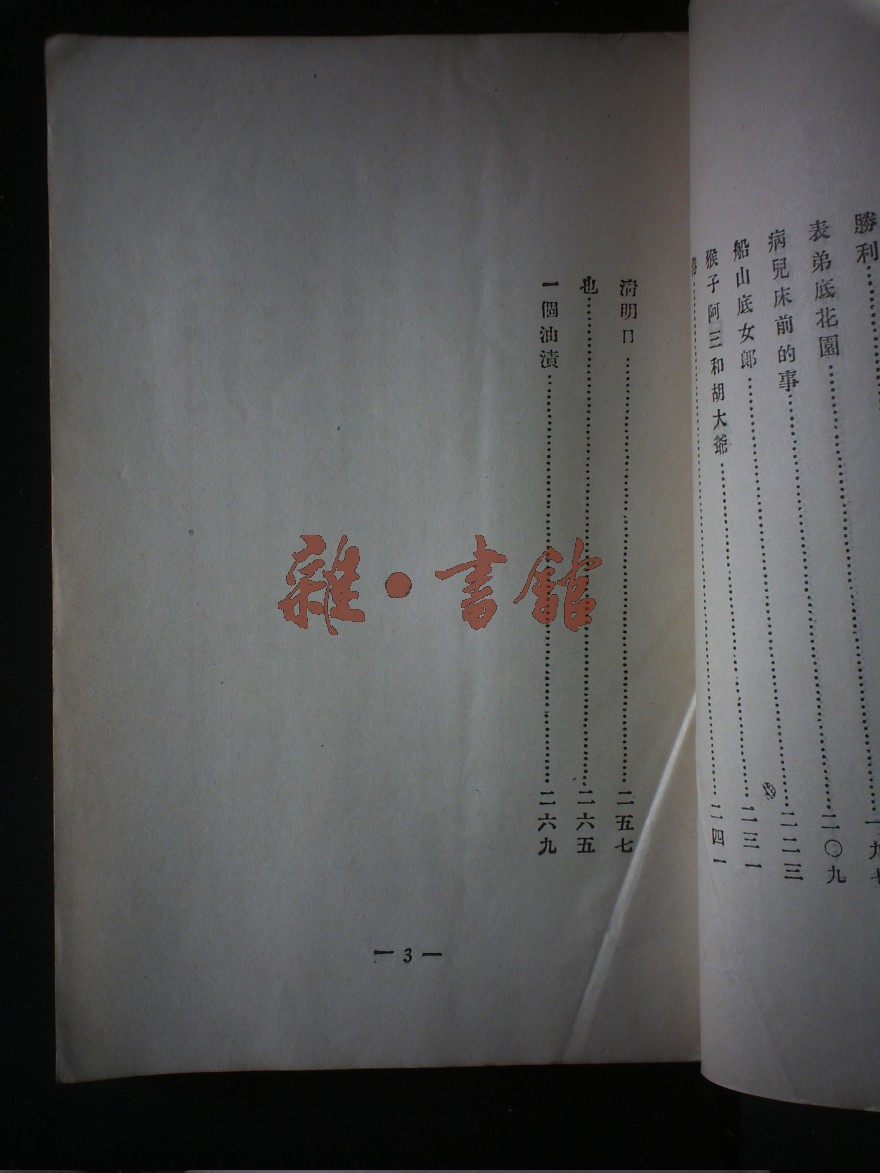 勝利……一九七
表弟底花園……二〇九
病兒床前的事……二二三
船山底女郎……二三一
猴子阿三和胡大爺……二四一
清明日……二五七
也……二六五
一個油漬……二六九
— 3 —
雜·書館